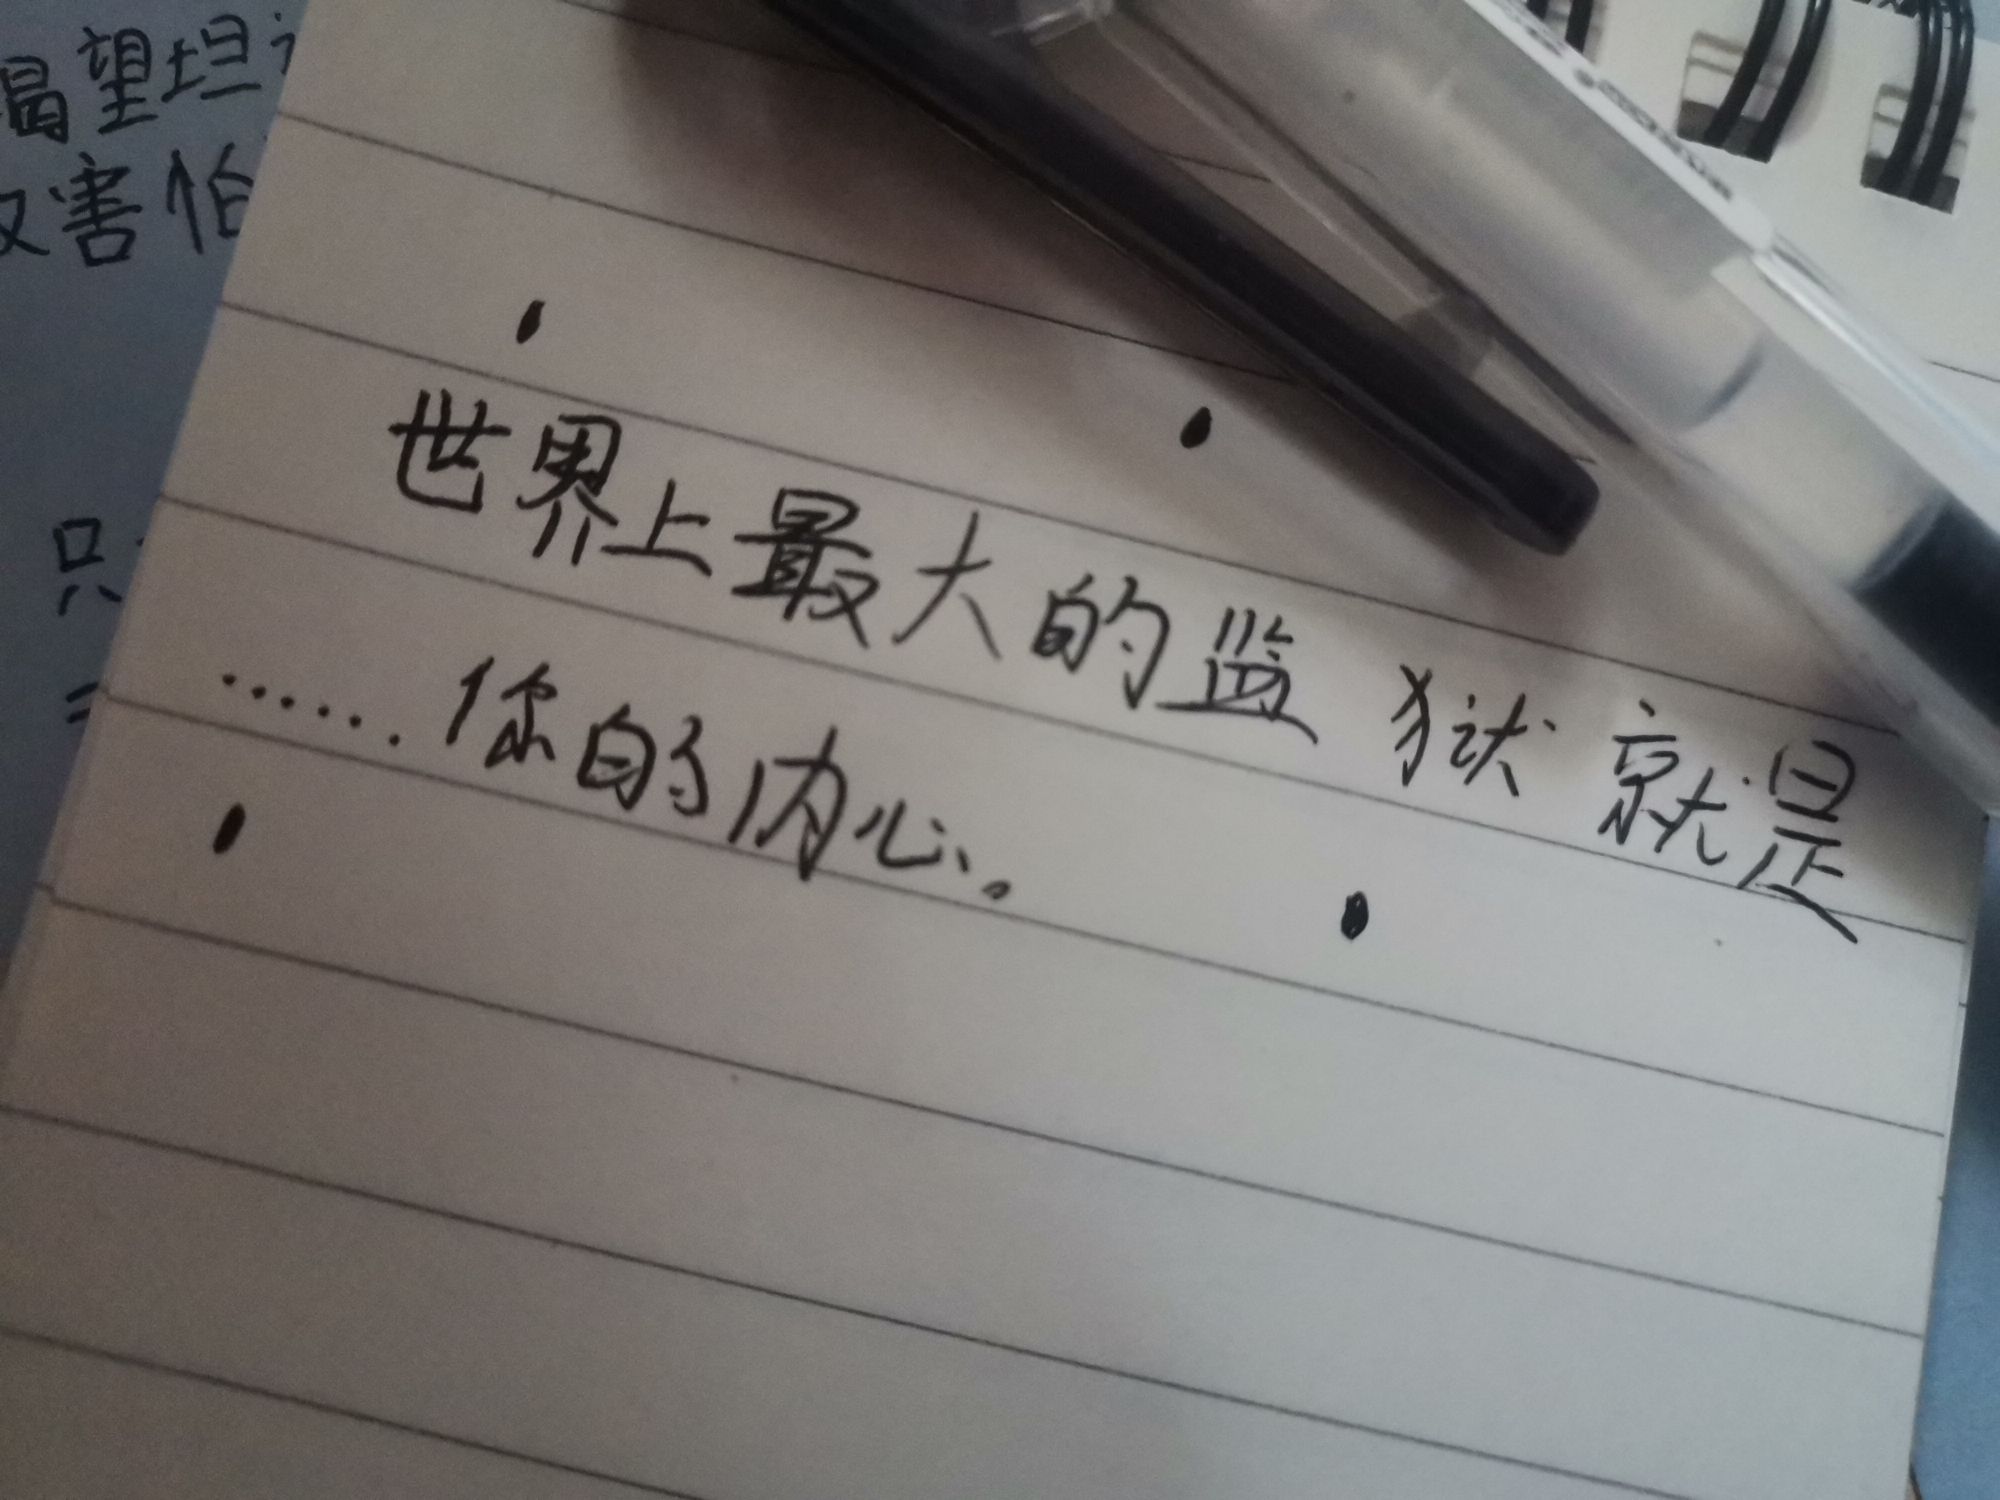 渴望坦
害怕
只
世界上最大的监狱就是
……你的内心。